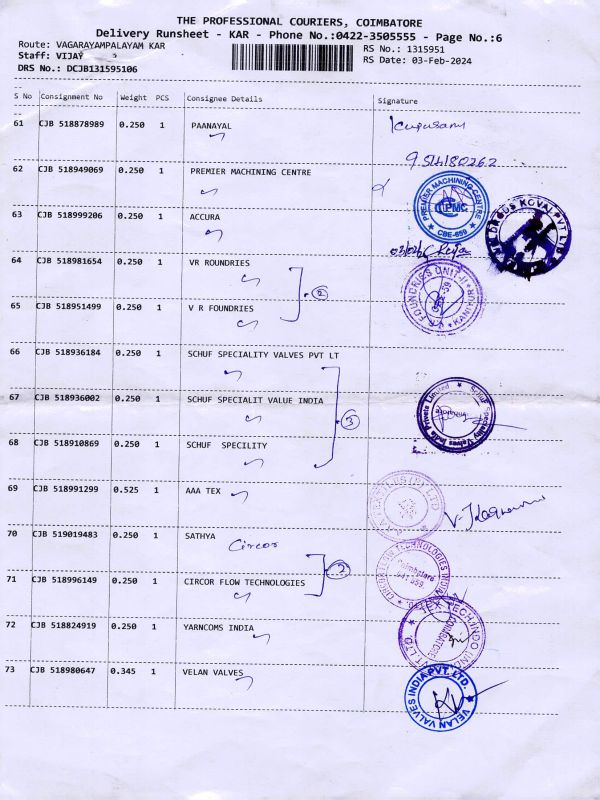 THE PROFESSIONAL COURIERS, COIMBATORE
Delivery Runsheet - KAR - Phone No.:0422-3505555 - Page No.:6
Route: VAGARAYAMPALAYAM KAR RS No.: 1315951
Staff: VIJAY RS Date: 03-Feb-2024
DRS No.: DCJB131595106
S No Consignment No Weight PCS Consignee Details Signature
61 CJB 518878989 0.250 1 PAANAYAL
62 CJB 518949069 0.250 1 PREMIER MACHINING CENTRE
PREMIER MACHINING CENTRE PMC CBE-659
63 CJB 518999206 0.250 1 ACCURA
KOVAI PVT LTD
64 CJB 518981654 0.250 1 VR ROUNDRIES
2
FOUNDRIES UNIT-II
65 CJB 518951499 0.250 1 V R FOUNDRIES
66 CJB 518936184 0.250 1 SCHUF SPECIALITY VALVES PVT LT
67 CJB 518936002 0.250 1 SCHUF SPECIALIT VALUE INDIA
3
Schuf Speciality Valves India Private Limited
68 CJB 518910869 0.250 1 SCHUF SPECILITY
69 CJB 518991299 0.525 1 AAA TEX
70 CJB 519019483 0.250 1 SATHYA
Circor
2
CIRCOR FLOW TECHNOLOGIES INDIA
Coimbatore
71 CJB 518996149 0.250 1 CIRCOR FLOW TECHNOLOGIES
72 CJB 518824919 0.250 1 YARNCOMS INDIA
COIMBATORE
73 CJB 518980647 0.345 1 VELAN VALVES
VELAN VALVES INDIA PVT. LTD.